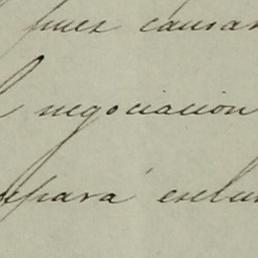 pues causar
negociacion
separá esclu